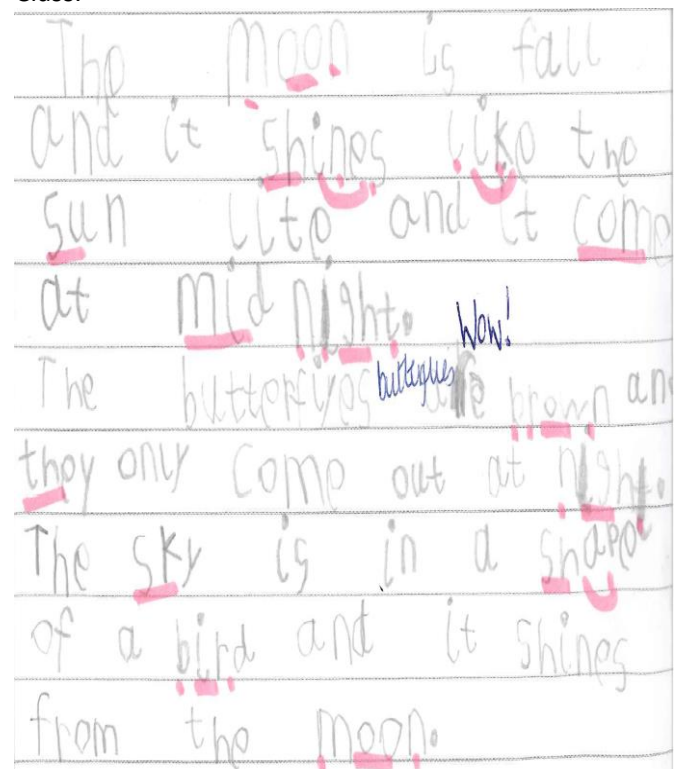 The moon is fall
and it shines like the
sun lite and it come
at mid night. Wow!
The butterfyes butterflies are brown and
they only come out at night.
The sky is in a shape
of a bird and it shines
from the moon.